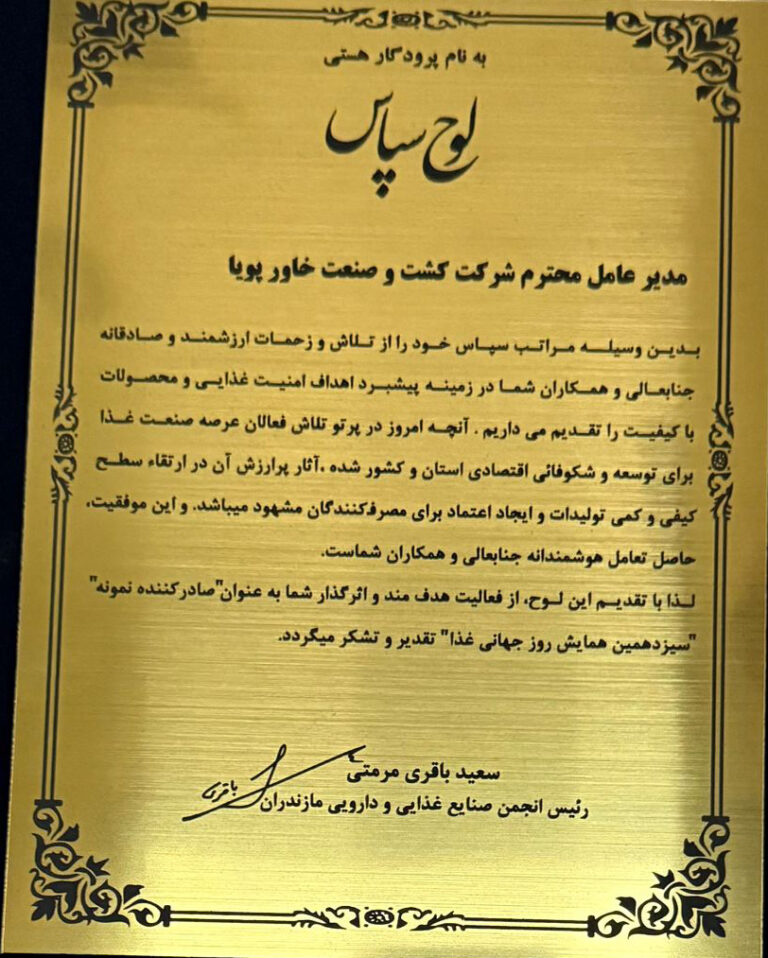 به نام پرودگار هستی
لوح سپاس
مدیر عامل محترم شرکت کشت و صنعت خاور پویا
بدین وسیله مراتب سپاس خود را از تلاش و زحمات ارزشمند و صادقانه
جنابعالی و همکاران شما در زمینه پیشبرد اهداف امنیت غذایی و محصولات
با کیفیت را تقدیم می داریم . آنچه امروز در پرتو تلاش فعالان عرصه صنعت غذا
برای توسعه و شکوفائی اقتصادی استان و کشور شده ،آثار پرارزش آن در ارتقاء سطح
کیفی و کمی تولیدات و ایجاد اعتماد برای مصرفکنندگان مشهود میباشد. و این موفقیت،
حاصل تعامل هوشمندانه جنابعالی و همکاران شماست.
لذا با تقدیم این لوح، از فعالیت هدف مند و اثرگذار شما به عنوان"صادرکننده نمونه"
"سیزدهمین همایش روز جهانی غذا" تقدیر و تشکر میگردد.
سعید باقری مرمتی
رئیس انجمن صنایع غذایی و دارویی مازندران
باقری